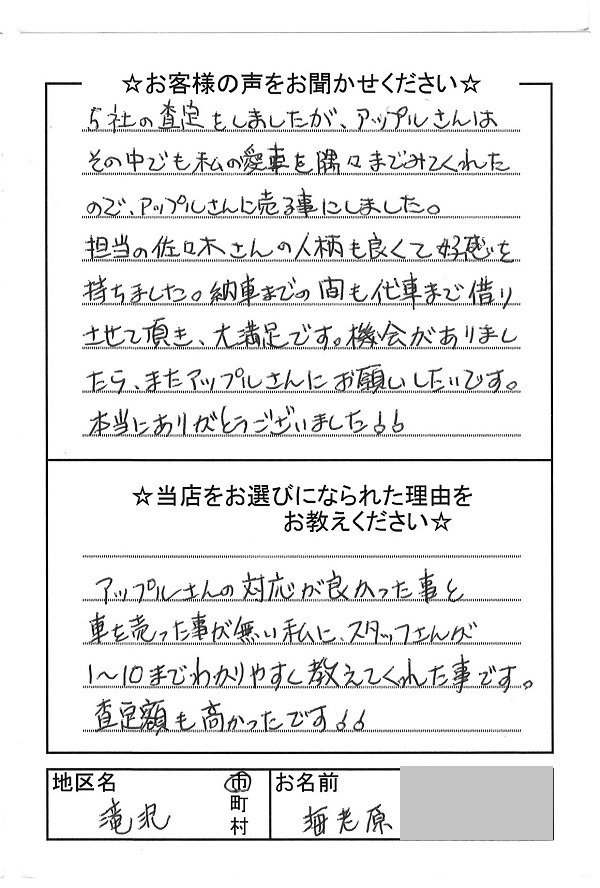 ☆お客様の声をお聞かせください☆
5社の査定をしましたが、アップルさんは
その中でも私の愛車を隅々までみてくれた
ので、アップルさんに売る事にしました。
担当の佐々木さんの人柄も良くて好感を
持ちました。納車までの間も代車まで借り
させて頂き、大満足です。機会がありまし
たら、またアップルさんにお願いしたいです。
本当にありがとうございました!!
☆当店をお選びになられた理由を
お教えください☆
アップルさんの対応が良かった事と
車を売った事が無い私に、スタッフさんが
1〜10までわかりやすく教えてくれた事です。
査定額も高かったです!!
地区名 滝沢 市
町
村
お名前 海老原